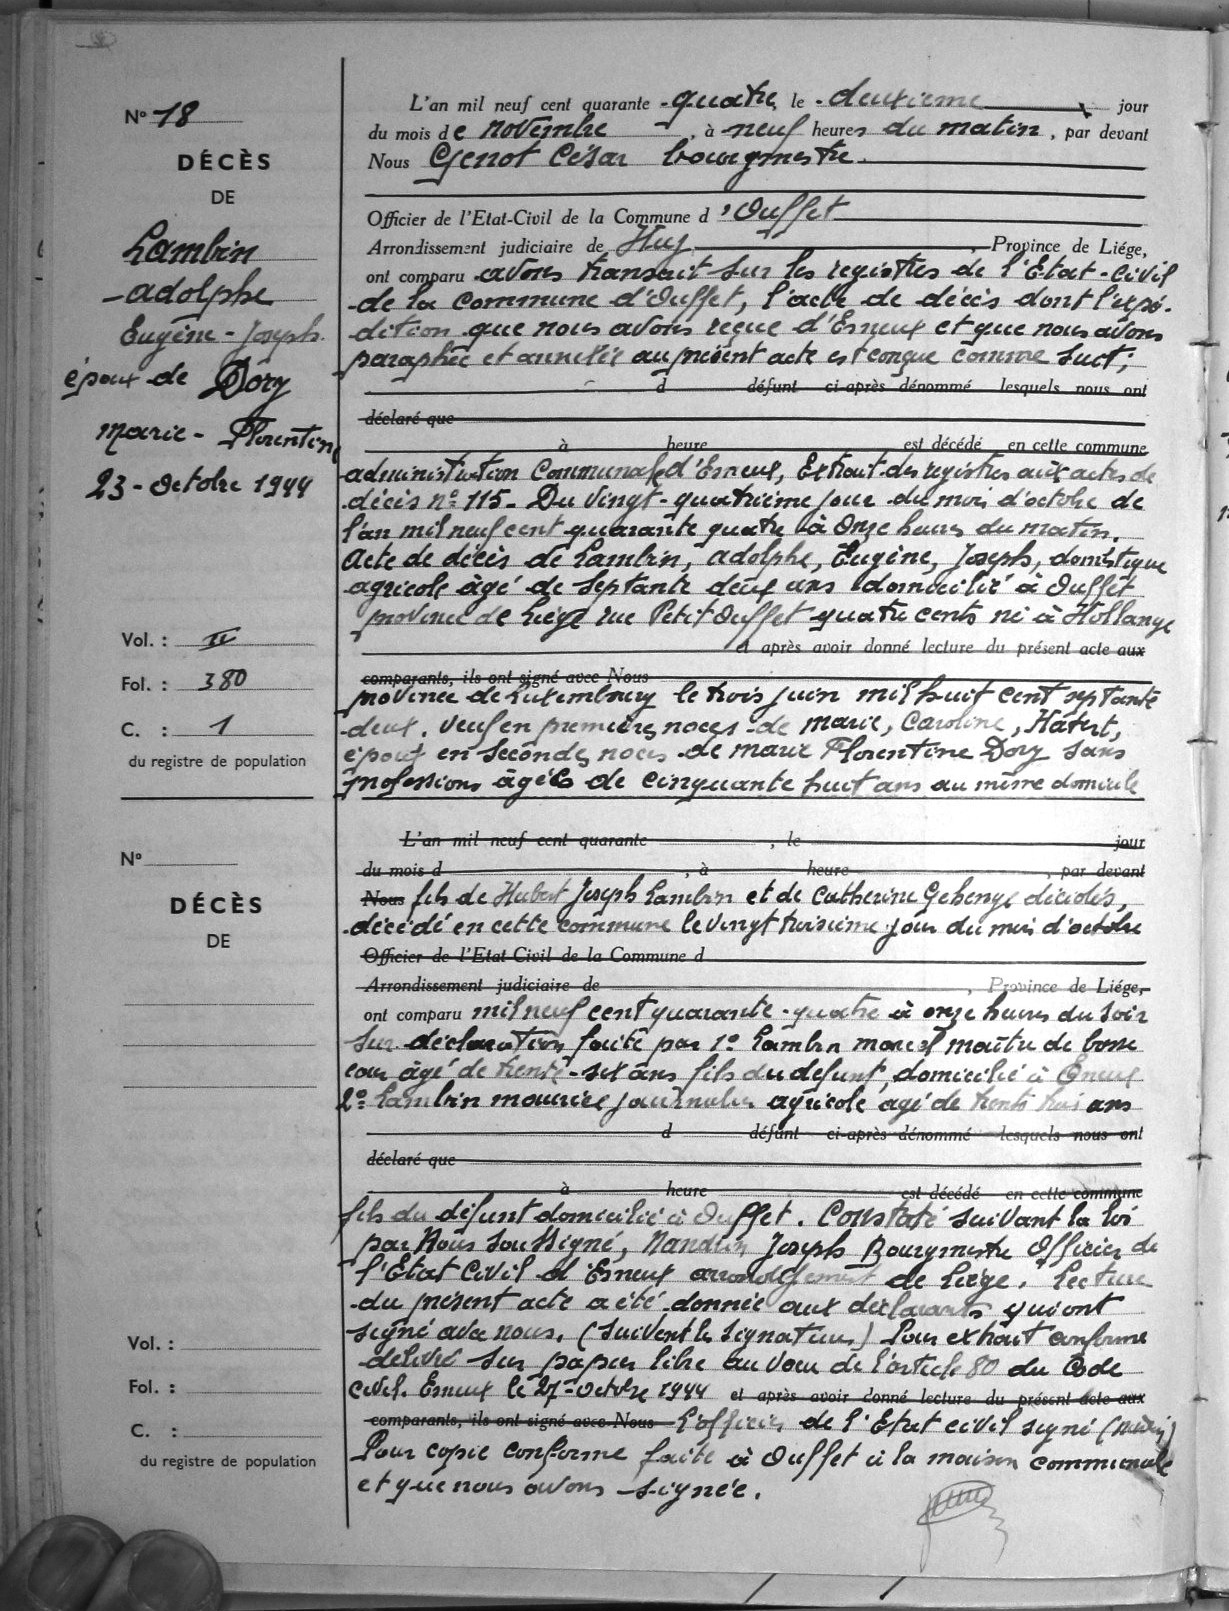 N° 18
DÉCÈS
DE
Lambin
Adolphe
Eugène - Joseph
époux de Dory
Marie - Florentine
23 - Octobre 1944
Vol. : II
Fol. : 380
C. : 1
du registre de population
L'an mil neuf cent quarante - quatre, le - deuxième jour
du mois de novembre, à neuf heures du matin, par devant
Nous Genot César bourgmestre.
Officier de l'Etat-Civil de la Commune d'Ouffet
Arrondissement judiciaire de Huy, Province de Liége,
ont comparu avons transcrit sur les registres de l'Etat-Civil
de la commune d'Ouffet, l'acte de décès dont l'expé-
dition que nous avons reçue d'Esneux et que nous avons
paraphée et annexée au présent acte est conçue comme suit;
d défunt ci-après dénommé lesquels nous ont
déclaré que
à heure est décédé en cette commune
administration Communale d'Esneux, Extrait des registres aux actes de
décès n° 115. Du vingt-quatrième jour du mois d'octobre de
l'an mil neuf cent quarante quatre à onze heures du matin.
Acte de décès de Lambin, Adolphe, Eugène, Joseph, domestique
agricole âgé de septante deux ans domicilié à Ouffet
province de Liège rue Petit Ouffet quatre cents né à Hollange
et après avoir donné lecture du présent acte aux
comparants, ils ont signé avec Nous
province de Luxembourg le trois juin mil huit cent septante
deux. Veuf en premières noces de Marie, Caroline,
époux en secondes noces de Marie Florentine Dory sans
professions âgée de cinquante huit ans au même domicile
N°
DÉCÈS
DE
Vol. :
Fol. :
C. :
du registre de population
L'an mil neuf cent quarante , le jour
du mois d , à heure , par devant
Nous fils de Hubert Joseph Lambin et de Catherine décédés,
décédé en cette commune le vingt troisième jour du mois d'octobre
Officier de l'Etat-Civil de la Commune d
Arrondissement judiciaire de , Province de Liége,
ont comparu mil neuf cent quarante-quatre à onze heures du soir
sur déclaration faite par 1° Lambin Marcel maître de basse
cour âgé de trente-six ans fils du défunt, domicilié à Esneux
2° Lambin Maurice journalier agricole âgé de trente trois ans
d défunt ci-après dénommé lesquels nous ont
déclaré que
à heure est décédé en cette commune
fils du défunt domicilié à Ouffet. Constaté suivant la loi
par Nous soussigné, Nandrin Joseph Bourgmestre Officier de
l'Etat Civil d'Esneux arrondissement de Liège. Lecture
du présent acte a été donnée aux déclarants qui ont
signé avec nous. (suivent les signatures) Pour extrait conforme
délivré sur papier libre au vœu de l'article 80 du Code
civil. Esneux le 27 - Octobre 1944 et après avoir donné lecture du présent acte aux
comparants, ils ont signé avec Nous L'officier de l'Etat civil signé
Pour copie conforme faite à Ouffet à la maison communale
et que nous avons signée.